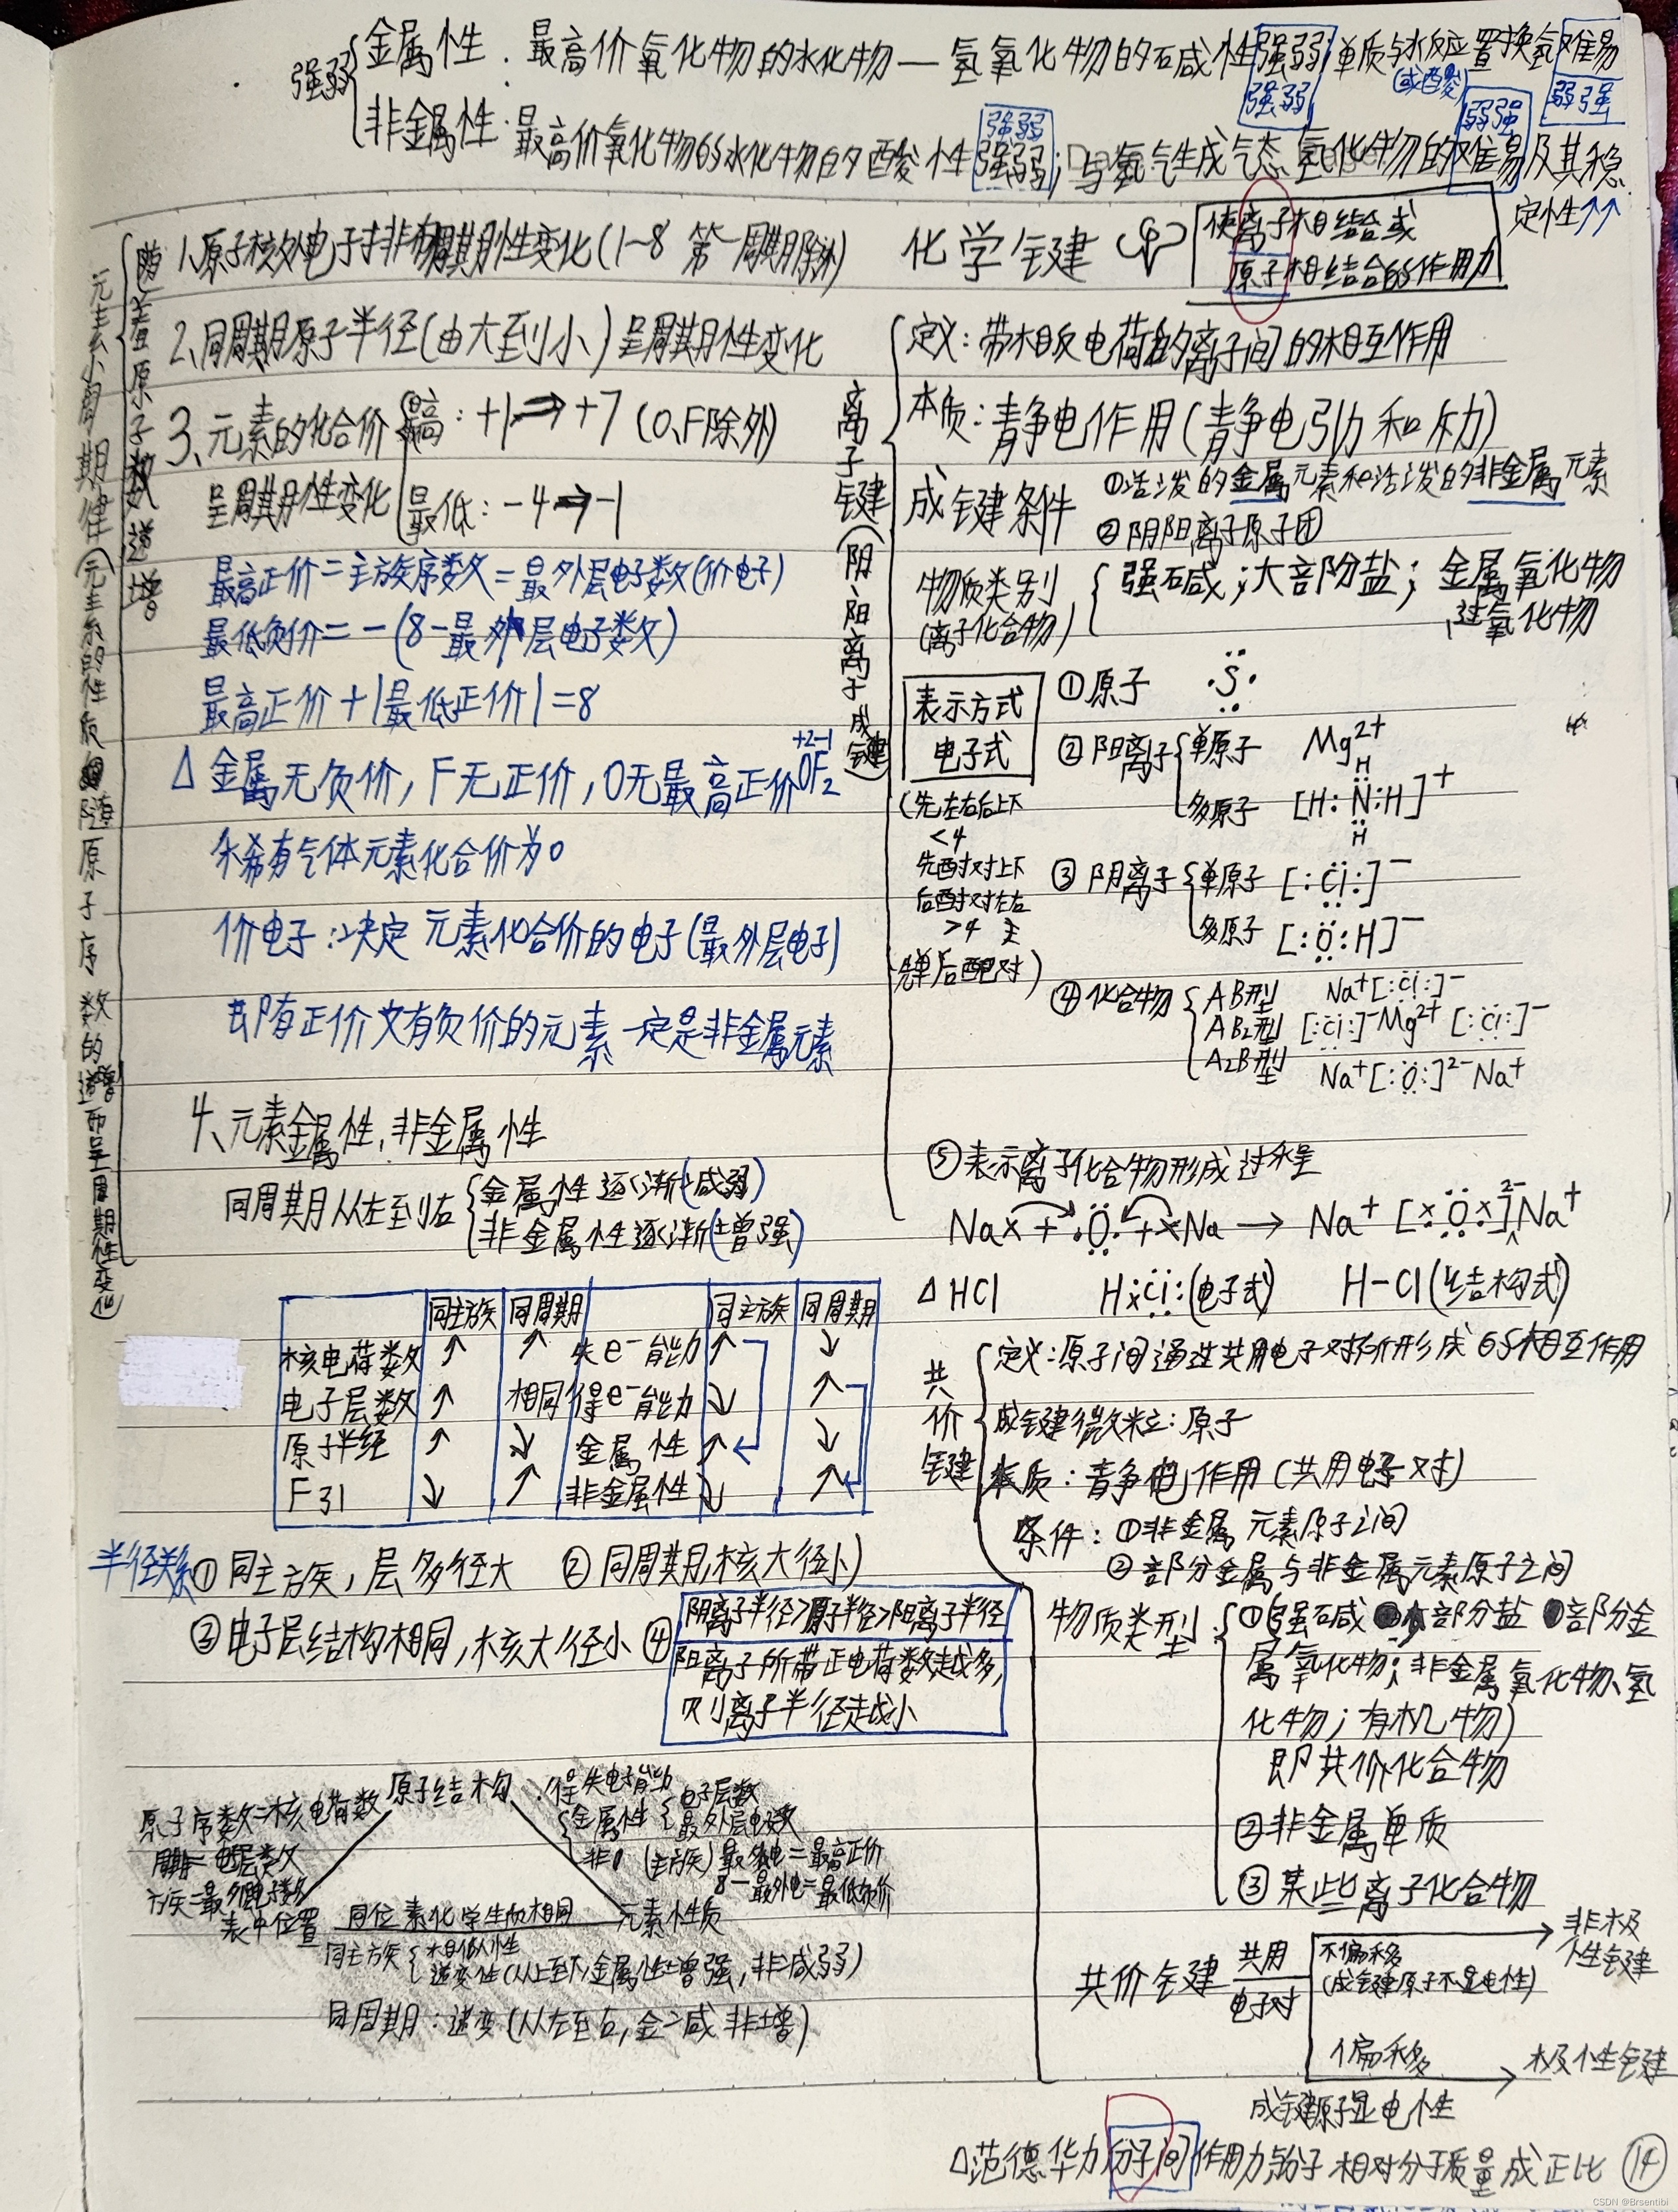 强弱
金属性：最高价氧化物的水化物—氢氧化物的碱性强弱；单质与水反应置换氢难易
强弱 (或酸) 弱强
强弱 弱强
非金属性：最高价氧化物的水化物的酸性强弱；与氢气生成气态氢化物的难易及其稳
定性↑↑
元素周期律(元素的性质随原子序数的递增而呈周期性变化)
随着原子序数递增
1、原子核外电子排布周期性变化(1~8 第一周期除外)
2、同周期原子半径(由大到小)呈周期性变化
3、元素的化合价 最高：+1⇒+7 (O、F除外)
呈周期性变化 最低：-4⇒-1
最高正价=主族序数=最外层电子数(价电子)
最低负价=-(8-最外层电子数)
最高正价+|最低正价|=8
+2-1
△ 金属无负价，F无正价，O无最高正价OF₂
稀有气体元素化合价为0
价电子：决定元素化合价的电子(最外层电子)
既有正价又有负价的元素一定是非金属元素
4、元素金属性，非金属性
同周期从左到右 金属性逐渐(减弱)
非金属性逐渐(增强)
同主族 同周期 同主族 同周期
核电荷数 ↑ ↑ 失e⁻能力 ↑ ↓
电子层数 ↑ 相同 得e⁻能力 ↓ ↑
原子半径 ↑ ↓ 金属性 ↑ ↓
F引 ↓ ↑ 非金属性 ↓ ↑
半径关系 ①同主族，层多径大 ②同周期，核大径小
③电子层结构相同，核大径小 ④ 阴离子半径>原子半径>阳离子半径
阳离子所带正电荷数越多，
则离子半径越小
原子结构：得失电子能力
原子序数=核电荷数
金属性 电子层数
最外层电子数
周期=电层数
非 (主族)最外电=最高正价
8-最外电=最低负价
族=最外电子数
表中位置 同位素化学性质相同 元素性质
同主族 相似性
递变性(从上至下，金属性增强，非减弱)
同周期：递变(从左至右，金减 非增)
化学键 使离子相结合或
原子相结合的作用力
离子键(阴阳离子成键)
定义：带相反电荷的离子间的相互作用
本质：静电作用(静电引力和斥力)
成键条件 ①活泼的金属元素和活泼的非金属元素
②阴阳离子原子团
物质类别 强碱；大部分盐；金属氧化物
(离子化合物) 、过氧化物
表示方式
电子式
(先左右后上下
<4
先配对上下
后配对左右
>4
先单后配对)
①原子 ·S·
②阳离子 单原子 Mg²⁺
多原子 [H:N:H]⁺
H
H
③阴离子 单原子 [:Cl:]⁻
多原子 [:O:H]⁻
④化合物 AB型 Na⁺[:Cl:]⁻
AB₂型 [:Cl:]⁻Mg²⁺[:Cl:]⁻
A₂B型 Na⁺[:O:]²⁻Na⁺
⑤表示离子化合物形成过程
Na× + ·O· + ×Na → Na⁺ [×O×]²⁻Na⁺
△ HCl H×Cl:(电子式) H-Cl(结构式)
共价键
定义：原子间通过共用电子对所形成的相互作用
成键微粒：原子
本质：静电作用(共用电子对)
条件：①非金属元素原子之间
②部分金属与非金属元素原子之间
物质类型： ①(强碱 部分盐 部分金
属氧化物；非金属氧化物、氢
化物；有机物)
即共价化合物
②非金属单质
③某些离子化合物
共价键 共用
电子对
不偏移
(成键原子不显电性)
非极
性键
偏移 极性键
成键原子显电性
△范德华力 分子间作用力与分子相对分子质量成正比 ⑭
CSDN @Brsentibi